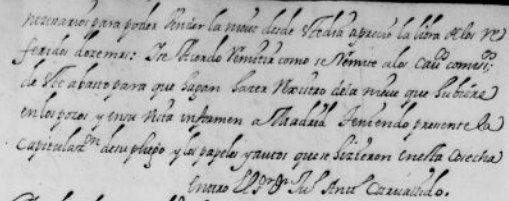 necesarios para poder vender la nieve desde este dia a precio la libra de los re
feridos doze mrs: Se Acordo Remitir como se Remite a los Cavos comisos
de este abasto para que hagan hazer Rexistro de la nieve que hubiere
en los pozos y en su vista informen a Madrid teniendo presente la
Capitulazon de su pliego y los papeles y autos que se hizieron en esta Cosecha
entro El Sr Dn Jul Anto Carvallido.